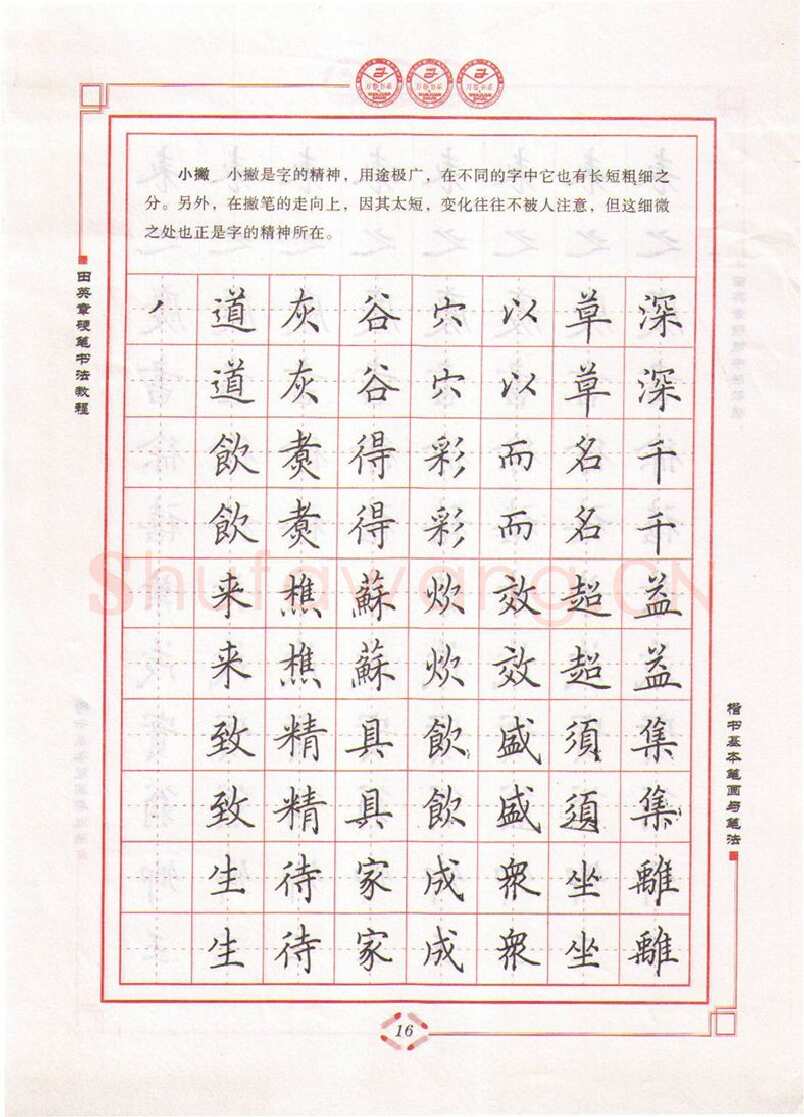 小撇 小撇是字的精神，用途极广，在不同的字中它也有长短粗细之
分。另外，在撇笔的走向上，因其太短，变化往往不被人注意，但这细微
之处也正是字的精神所在。
田英章硬笔书法教程
丿道灰谷穴以草深
道灰谷穴以草深
飲煮得彩而名千
飲煮得彩而名千
Shufawang.CN
来樵蘇炊效超益
来樵蘇炊效超益
致精具飲盛須集
致精具飲盛須集
生待家成衆坐離
生待家成衆坐離
楷书基本笔画与笔法
16